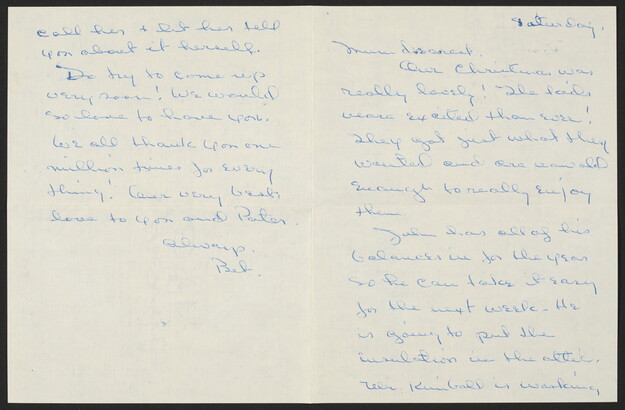 call her & let her tell
you about it herself.
Do try to come up
very soon! We would
so love to have you.
We all thank you one
million times for every
thing! Our very best
love to you and Pater.
Always.
Bet.
Saturday.
Mum dearest.
Our Christmas was
really lovely! The kids
were excited than ever!
They got just what they
wanted and are now old
enough to really enjoy
them.
John has all of his
balances in for the year
so he can take it easy
for the next week - He
is going to put the
insulation in the attic.
Mr. Kimball is working